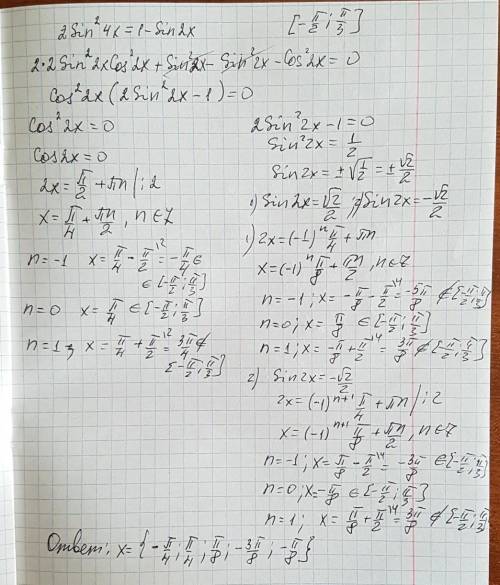 2Sin²4x = 1 - Sin2x   [-π/2; π/3]
2·2Sin²2xCos²2x + Sin²2x - Sin²2x - Cos²2x = 0
Cos²2x(2Sin²2x - 1) = 0
Cos²2x = 0
Cos2x = 0
2x = π/2 + πn |:2
x = π/4 + πn/2, n∈Z
n = -1   x = π/4 - π/2 \2 = -π/4 ∈
∈ [-π/2; π/3]
n = 0   x = π/4 ∈ [-π/2; π/3]
n = 1   x = π/4 + π/2 \2 = 3π/4 ∉
[-π/2; π/3]
2Sin²2x - 1 = 0
Sin²2x = 1/2
Sin2x = ±√1/2 = ±√2/2
1) Sin2x = √2/2; 2) Sin2x = -√2/2
1) 2x = (-1)ⁿ π/4 + πn
x = (-1)ⁿ π/8 + πn/2, n∈Z
n = -1; x = -π/8 - π/2 \4 = -5π/8 ∉ [-π/2; π/3]
n = 0; x = π/8 ∈ [-π/2; π/3]
n = 1; x = -π/8 + π/2 \4 = 3π/8 ∉ [-π/2; π/3]
2) Sin2x = -√2/2
2x = (-1)ⁿ⁺¹ π/4 + πn |:2
x = (-1)ⁿ⁺¹ π/8 + πn/2, n∈Z
n = -1; x = π/8 - π/2 \4 = -3π/8 ∈ [-π/2; π/3]
n = 0; x = -π/8 ∈ [-π/2; π/3]
n = 1; x = π/8 + π/2 \4 = 3π/8 ∉ [-π/2; π/3]
Ответ: x = {-π/4; π/4; π/8; -3π/8; -π/8}